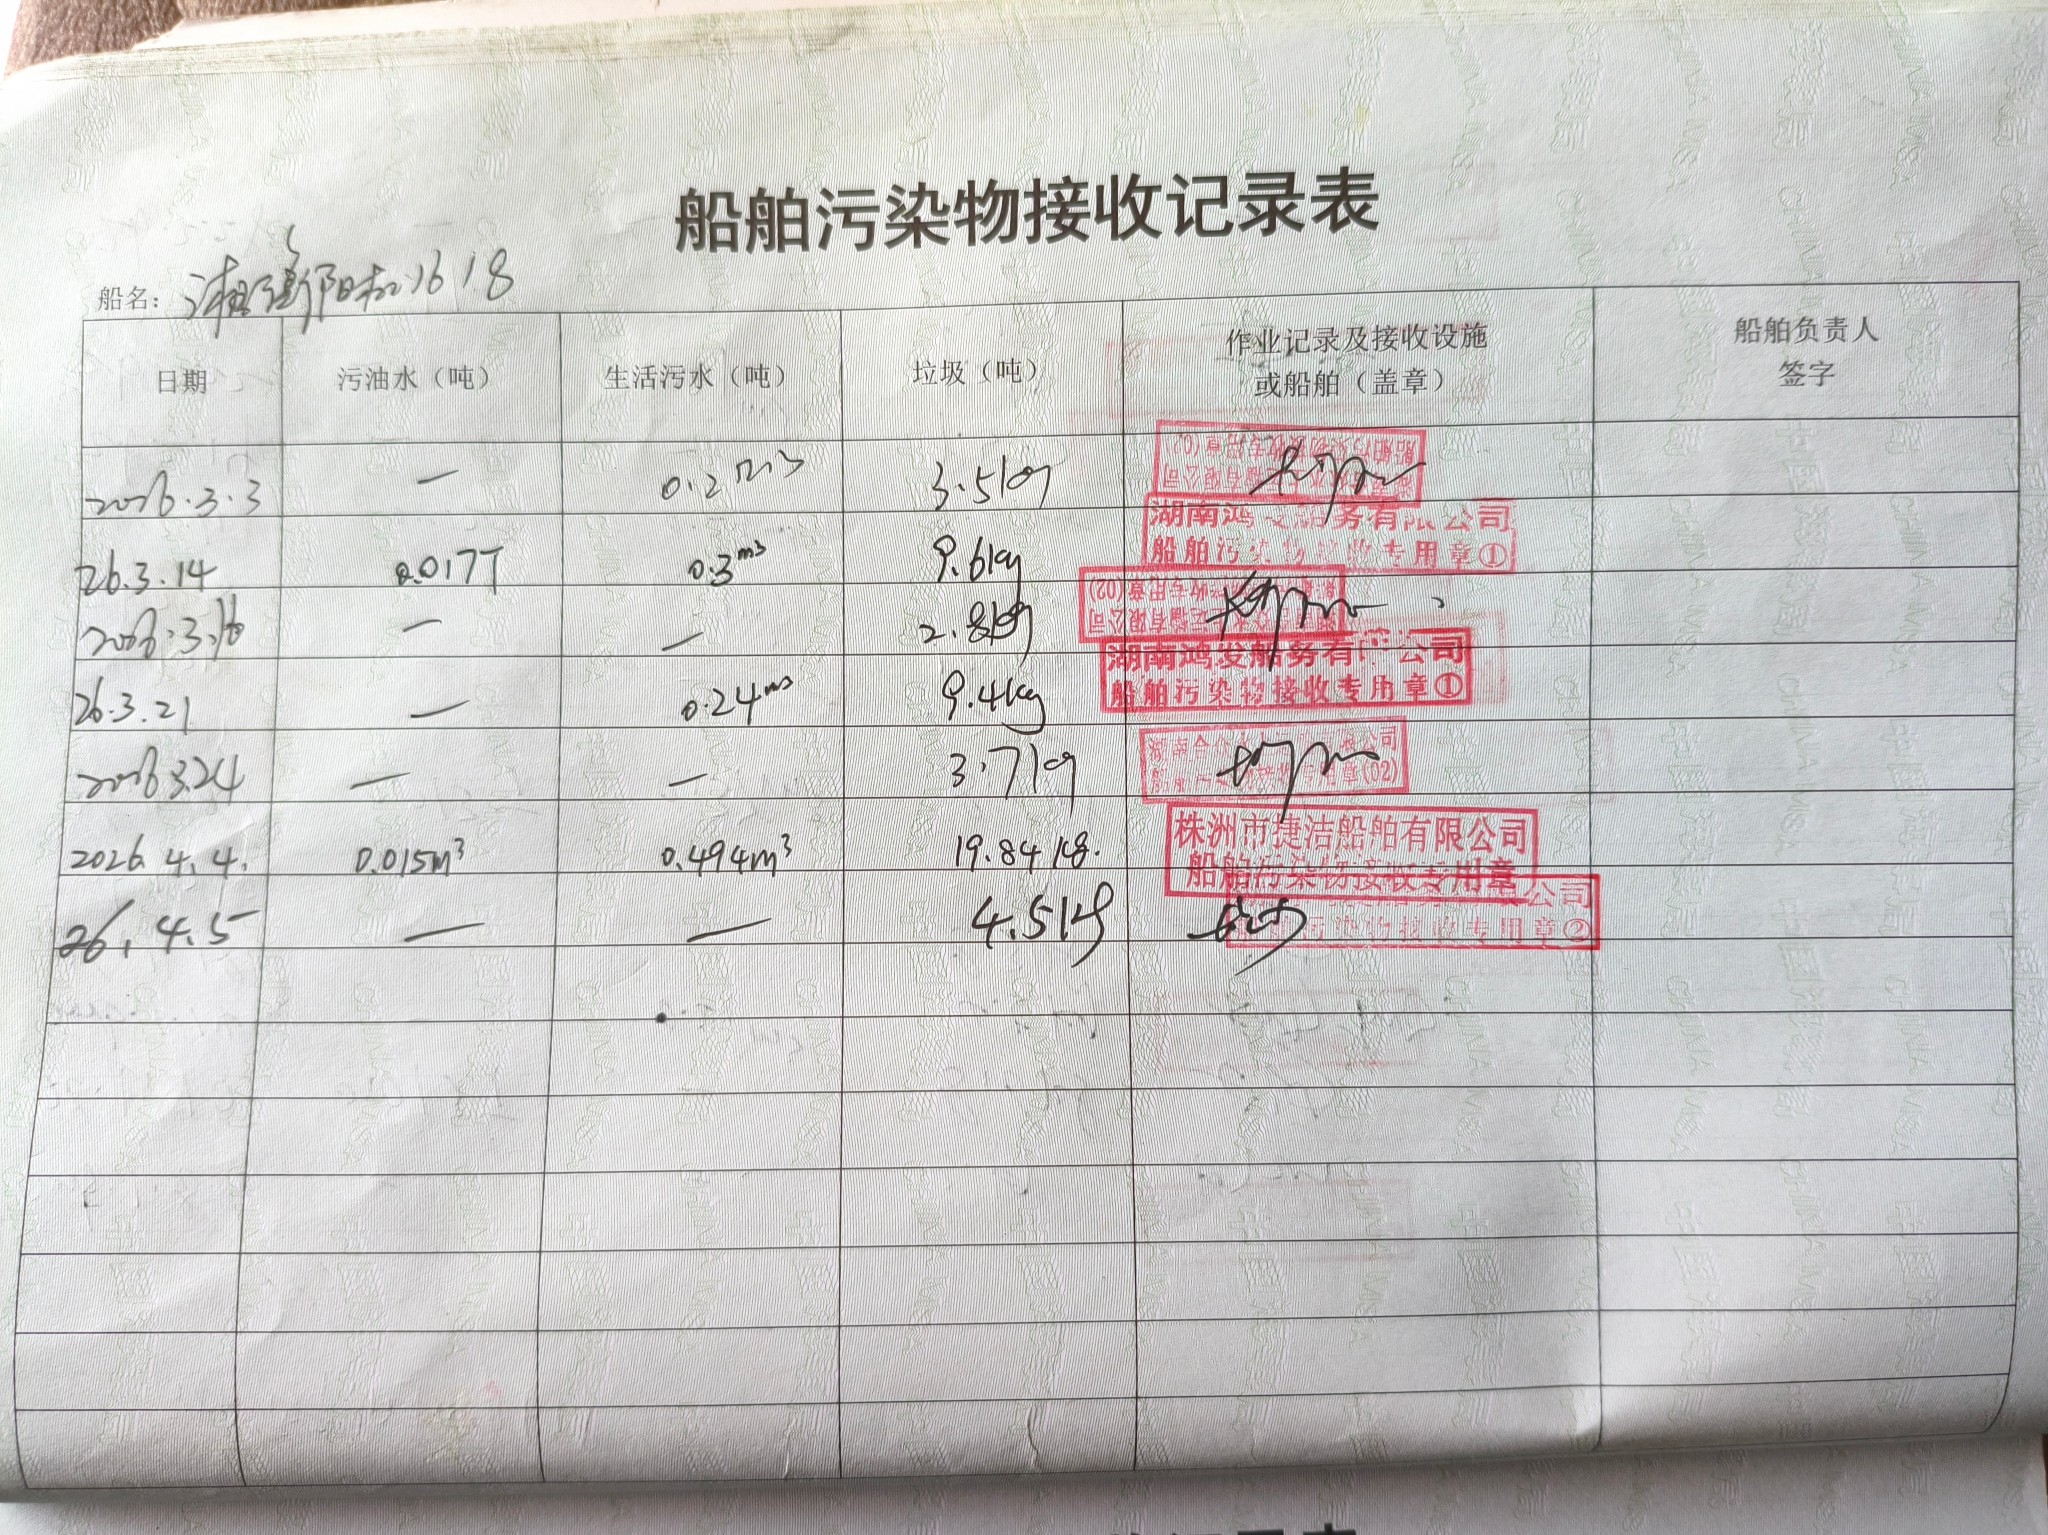 船舶污染物接收记录表
船名：
1618
日期 污油水（吨） 生活污水（吨） 垃圾（吨） 作业记录及接收设施或船舶（盖章） 船舶负责人签字
2026.3.3 — 0.2m3 3.5kg
26.3.14 0.017T 0.3m3 9.6kg
湖南鸿发船务有限公司
船舶污染物接收专用章①
— — 2.8kg
26.3.21 — 0.24m3 9.4kg
湖南鸿发船务有限公司
船舶污染物接收专用章①
2026.3.24 — — 3.7kg
2026.4.4. 0.015m3 0.494m3 19.84kg.
株洲市捷洁船舶有限公司
船舶污染物接收专用章
26.4.5 — — 4.5kg
公司
污染物接收专用章②